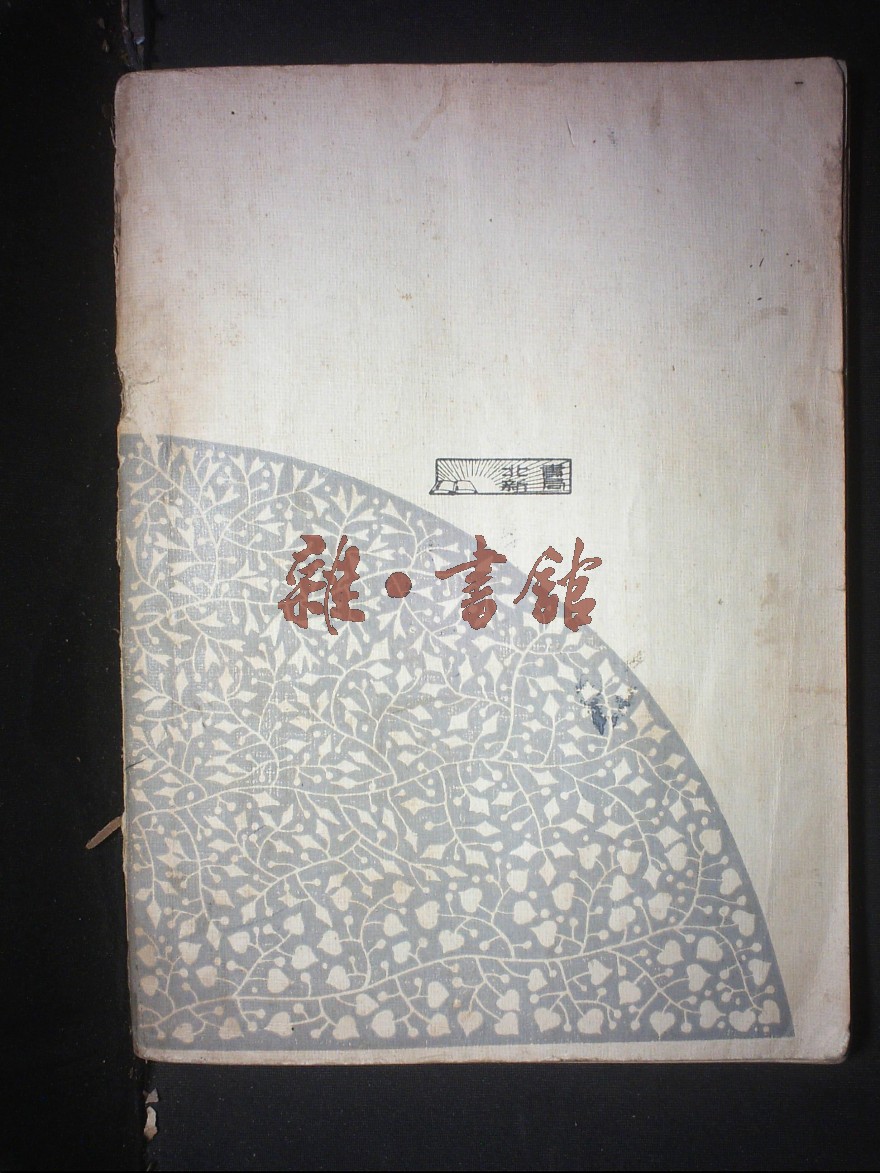 北新書局
雜·書館